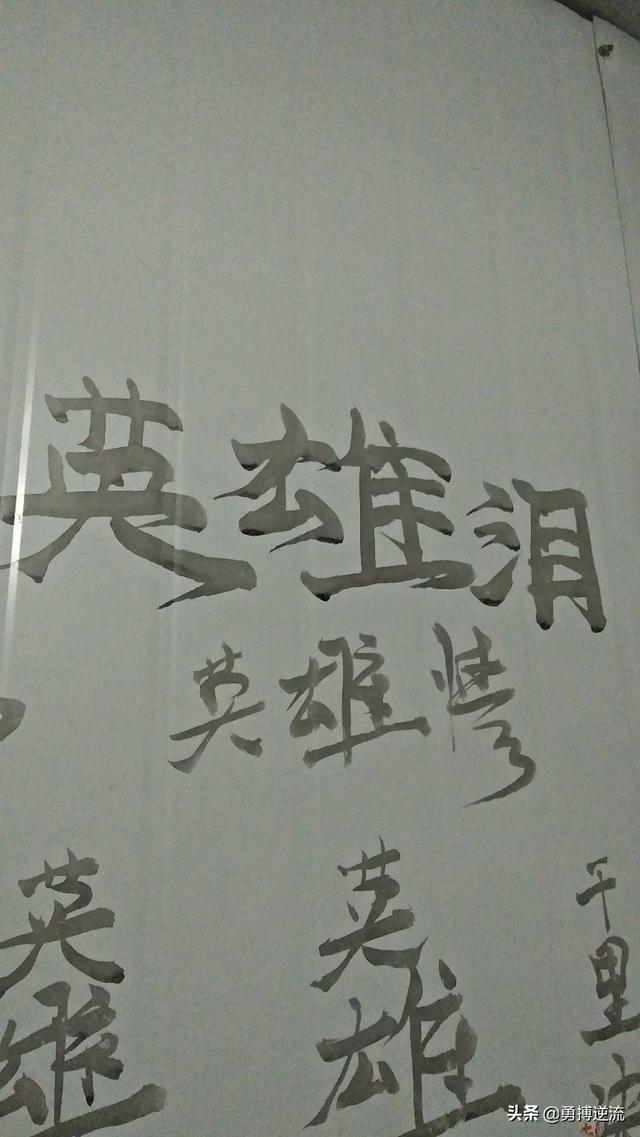 英雄泪
英雄情
英雄
英雄
千里
头条 @勇搏逆流